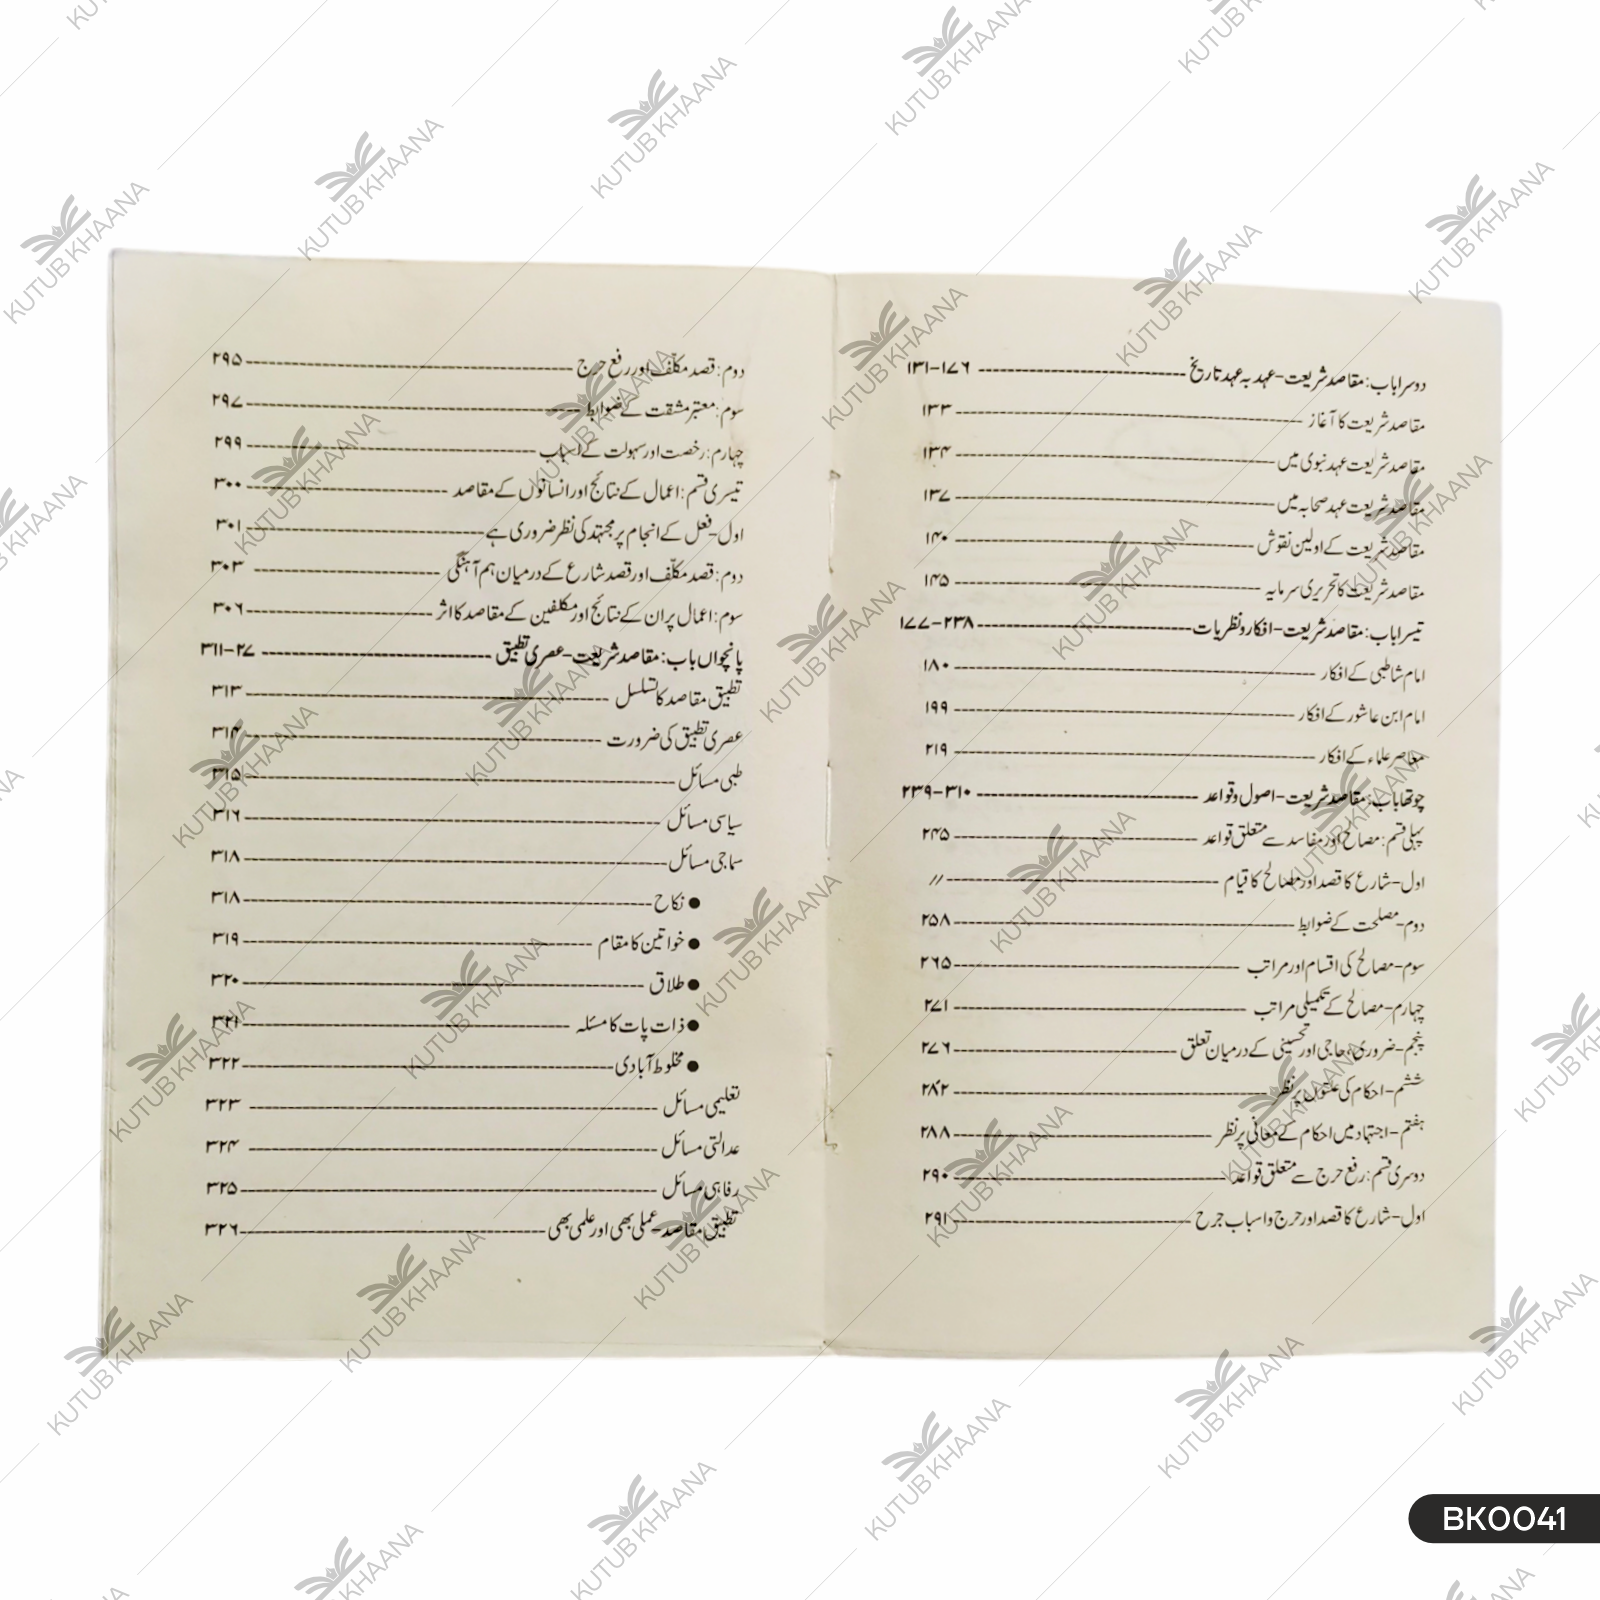 دوسرا باب: مقاصد شریعت-عہد بہ عہد تاریخ ۱۳۱-۱۷۶
مقاصد شریعت کا آغاز ۱۳۳
مقاصد شریعت عہد نبوی میں ۱۳۴
مقاصد شریعت عہد صحابہ میں ۱۳۷
مقاصد شریعت کے اولین نقوش ۱۴۰
مقاصد شریعت کا تحریری سرمایہ ۱۴۵
تیسرا باب: مقاصد شریعت-افکار و نظریات ۱۷۷-۲۳۸
امام شاطبی کے افکار ۱۸۰
امام ابن عاشور کے افکار ۱۹۹
معاصر علماء کے افکار ۲۱۹
چوتھا باب: مقاصد شریعت-اصول و قواعد ۲۳۹-۳۱۰
پہلی قسم: مصالح اور مفاسد سے متعلق قواعد ۲۴۵
اول-شارع کا قصد اور مصالح کا قیام //
دوم-مصلحت کے ضوابط ۲۵۸
سوم-مصالح کی اقسام اور مراتب ۲۶۵
چہارم-مصالح کے تکمیلی مراتب ۲۷۱
پنجم-ضروری، حاجی اور تحسینی کے درمیان تعلق ۲۷۶
ششم-احکام کی علتوں پر نظر ۲۸۲
ہفتم-اجتہاد میں احکام کے معانی پر نظر ۲۸۸
دوسری قسم: رفع حرج سے متعلق قواعد ۲۹۰
اول-شارع کا قصد اور حرج و اسباب حرج ۲۹۱
دوم: قصد مکلّف اور رفع حرج ۲۹۵
سوم: معتبر مشقت کے ضوابط ۲۹۷
چہارم: رخصت اور سہولت کے اسباب ۲۹۹
تیسری قسم: اعمال کے نتائج اور انسانوں کے مقاصد ۳۰۰
اول-فعل کے انجام پر مجتہد کی نظر ضروری ہے ۳۰۱
دوم: قصد مکلّف اور قصد شارع کے درمیان ہم آہنگی ۳۰۳
سوم: اعمال پر ان کے نتائج اور مکلفین کے مقاصد کا اثر ۳۰۶
پانچواں باب: مقاصد شریعت-عصری تطبیق ۳۱۱-۲۷
تطبیق مقاصد کا تسلسل ۳۱۳
عصری تطبیق کی ضرورت ۳۱۴
طبی مسائل ۳۱۵
سیاسی مسائل ۳۱۶
سماجی مسائل ۳۱۸
● نکاح ۳۱۸
● خواتین کا مقام ۳۱۹
● طلاق ۳۲۰
● ذات پات کا مسئلہ ۳۲۱
● مخلوط آبادی ۳۲۲
تعلیمی مسائل ۳۲۳
عدالتی مسائل ۳۲۴
رفاہی مسائل ۳۲۵
تطبیق مقاصد-عملی بھی اور علمی بھی ۳۲۶
KUTUB KHAANA
BK0041